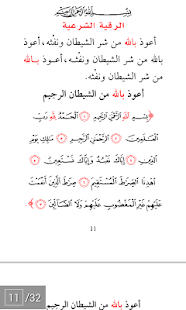 بِسْمِ اللَّهِ الرَّحْمَنِ الرَّحِيمِ
الرقية الشرعية
أعوذ بالله من شر الشيطان ونفثه، أعوذ
بالله من شر الشيطان ونفثه، أعوذ بالله
من شر الشيطان ونفثه.
أعوذ بالله من الشيطان الرجيم
﴿بِسْمِ اللَّهِ الرَّحْمَٰنِ الرَّحِيمِ ۝ الْحَمْدُ لِلَّهِ رَبِّ
الْعَالَمِينَ ۝ الرَّحْمَٰنِ الرَّحِيمِ ۝ مَالِكِ يَوْمِ
الدِّينِ ۝ إِيَّاكَ نَعْبُدُ وَإِيَّاكَ نَسْتَعِينُ ۝
اهْدِنَا الصِّرَاطَ الْمُسْتَقِيمَ ۝ صِرَاطَ الَّذِينَ أَنْعَمْتَ
عَلَيْهِمْ غَيْرِ الْمَغْضُوبِ عَلَيْهِمْ وَلَا الضَّالِّينَ ۝﴾
11
11 /32
أعوذ بالله من الشيطان الرجيم